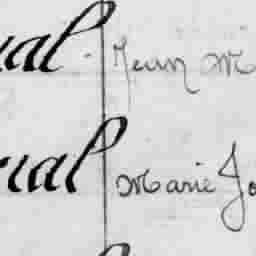 ual Jean M
rial Marie Jo